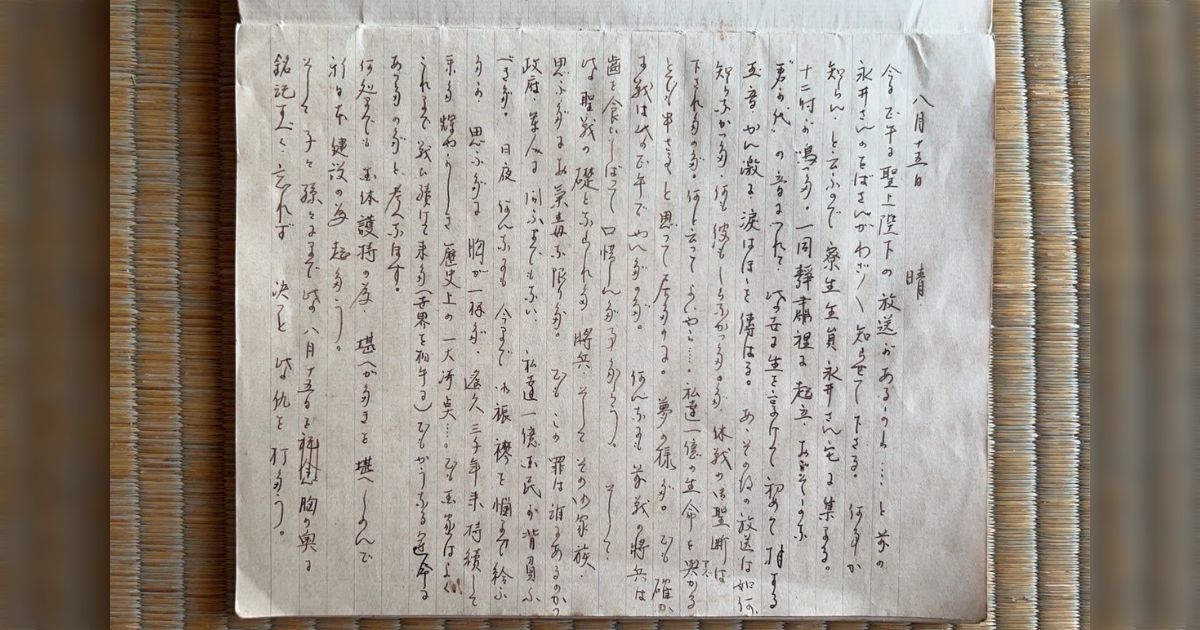 八月十五日 晴
今日正午に聖上陛下の放送があるのよ……と前の
永井さんのをばさんがわざ〱知らせて下さる。何事か
知らん、と云ふので寮生全員永井さん宅に集まる。
十二時が鳴った。一同静粛裡に起立、
君が代の音につれて、此の世に生を享けて初めて拝する
玉音、かん激に涙はほゝを傳はる。あゝその後の放送は如何
知らなかった、何も彼もしらなかった。が、休戦の御聖断は
下されたのだ。何と云ってよいやら…。私達一億の生命を
とも申さうと思って居たのに。夢の様だ。でも確か
に戦は此の正午で やんだのだ。何んなにも前戦の将兵は
歯を食いしばって口惜しんだ事だらう。そして、
此聖戦の礎となられた将兵、そしてその御家族、
思ふだにお気の毒な限りだ。でもこの罪は誰にあるのか
政府、軍人に問ふまでもない、私達一億国民が背負ふ
べきだ。日夜何んなにも今まで 悩まで給ふ
たか、思ふだに胸が一杯だ、悠久三千年来持続して
来た輝かしき歴史上の一大汚点…。でも国家はよく
これまで戦ひ続けて来た(世界を相手に)でもかうなる運命に
あったのだと考へなほす。
何処までも国体護持の為、堪へがたきを堪へしのんで
新日本建設の為起たう。
そして子々孫々にまで此の八月十五日を 胸の奥に
銘記して、忘れず 決して此の仇を打たう。